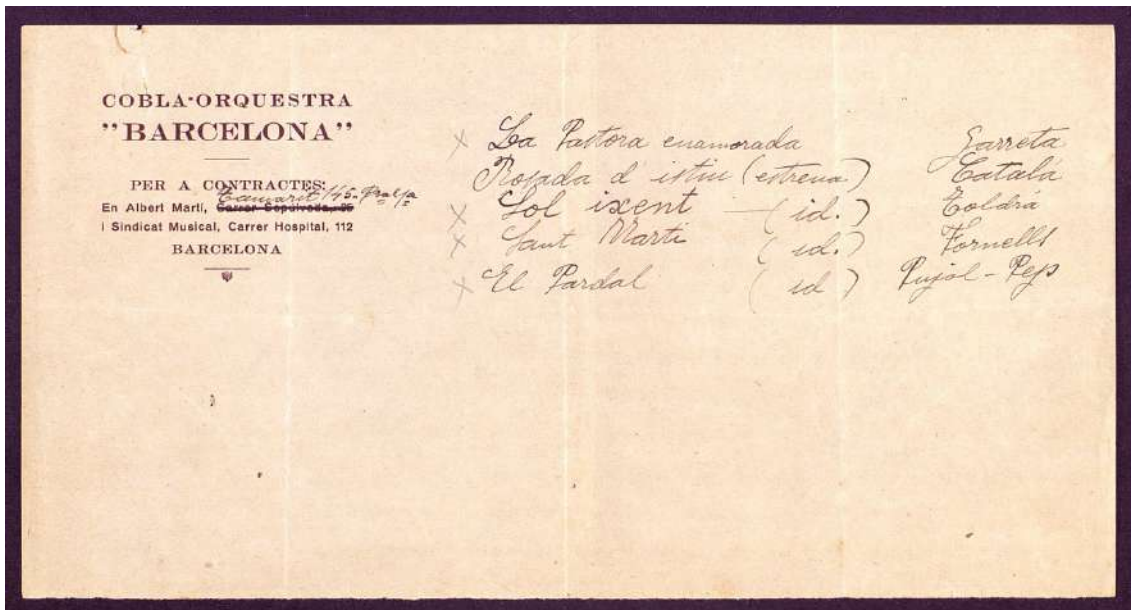 COBLA-ORQUESTRA
"BARCELONA"
PER A CONTRACTES:
Tamarit 145- Pral 1a
En Albert Martí, Carrer Sepúlveda, 95
i Sindicat Musical, Carrer Hospital, 112
BARCELONA
X La Pastora enamorada Garreta
Rosada d'istiu (estrena) Català
X Sol ixent — (id.) Toldrá
X Sant Martí (id.) Fornells
X El Pardal (id) Pujol - Pep